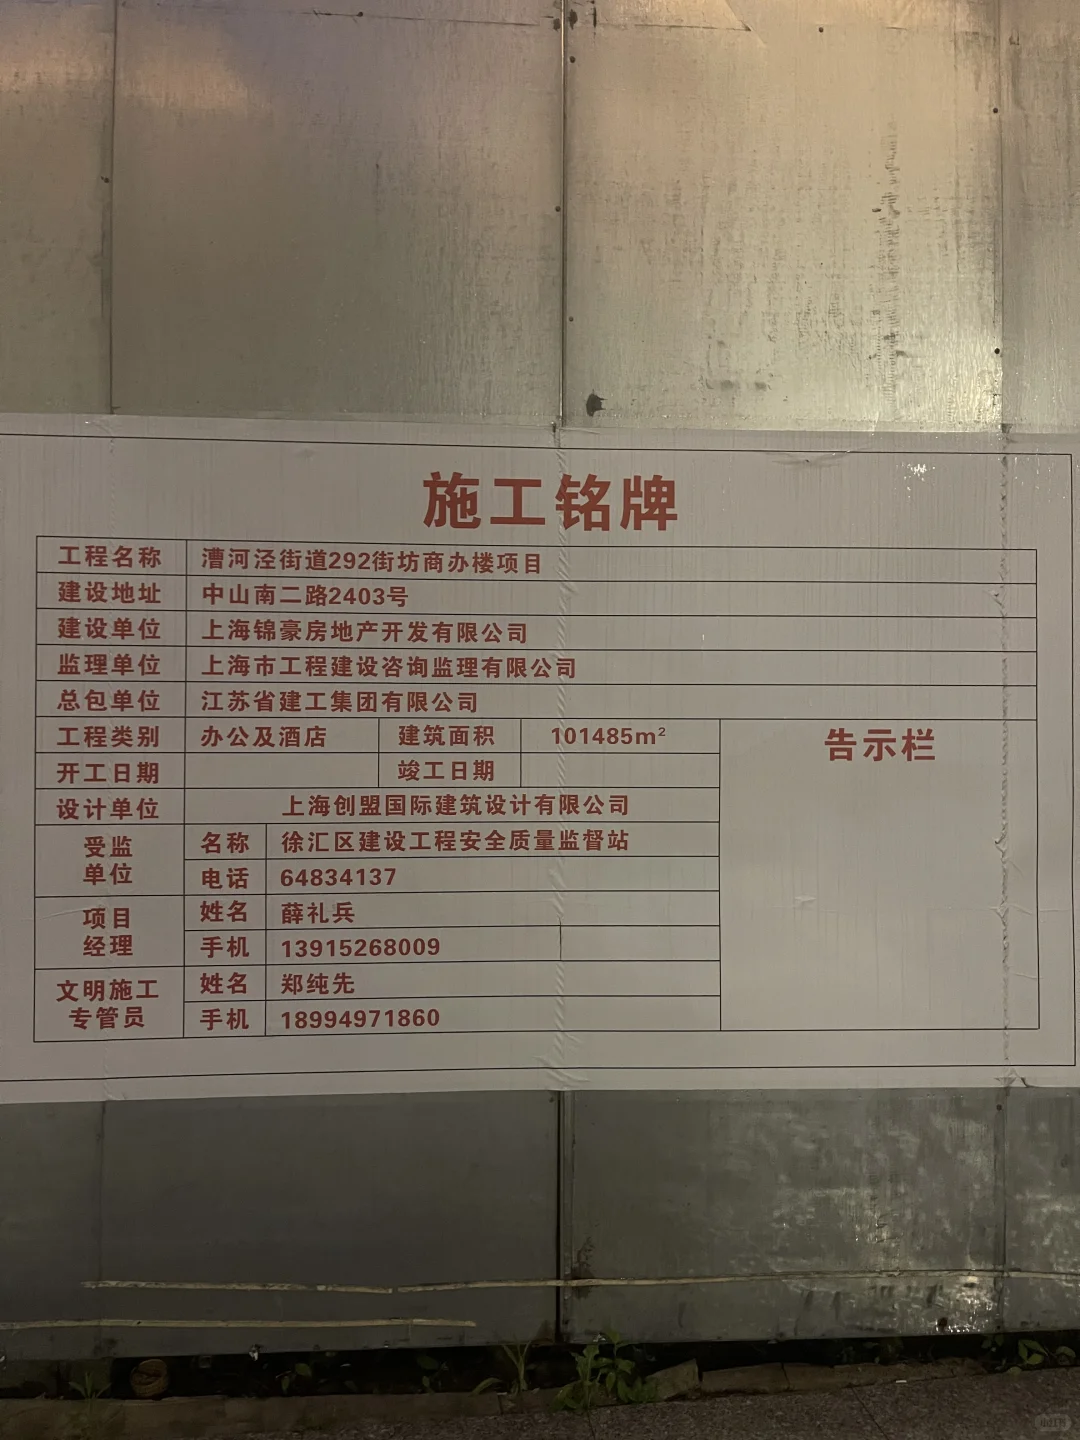 施工铭牌
工程名称 漕河泾街道292街坊商办楼项目
建设地址 中山南二路2403号
建设单位 上海锦豪房地产开发有限公司
监理单位 上海市工程建设咨询监理有限公司
总包单位 江苏省建工集团有限公司
工程类别 办公及酒店 建筑面积 101485m²
告示栏
开工日期 竣工日期
设计单位 上海创盟国际建筑设计有限公司
受监
单位
名称 徐汇区建设工程安全质量监督站
电话 64834137
项目
经理
姓名 薛礼兵
手机 13915268009
文明施工
专管员
姓名 郑纯先
手机 18994971860